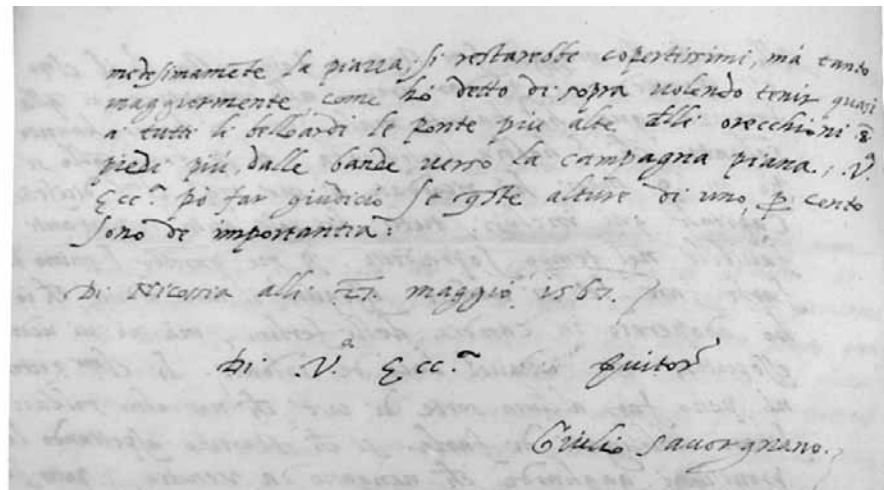 medesimamẽte la piazza, si restarebbe copertissimi, mà tanto
maggiormente come hò detto di sopra uolendo tenir quasi
a tutti li belloardi le ponte più alte delli orecchioni 8
piedi più, dalle bande uerso la campagna piana, .V.ª
Ecc.ª pò far giudicio se q̃ste alture di uno p̱ cento
sono de importantia:
Di Nicossia alli 27. maggio 1567.
Di .V.ª Ecc.ª seruitor
Giulio Sauorgnano.